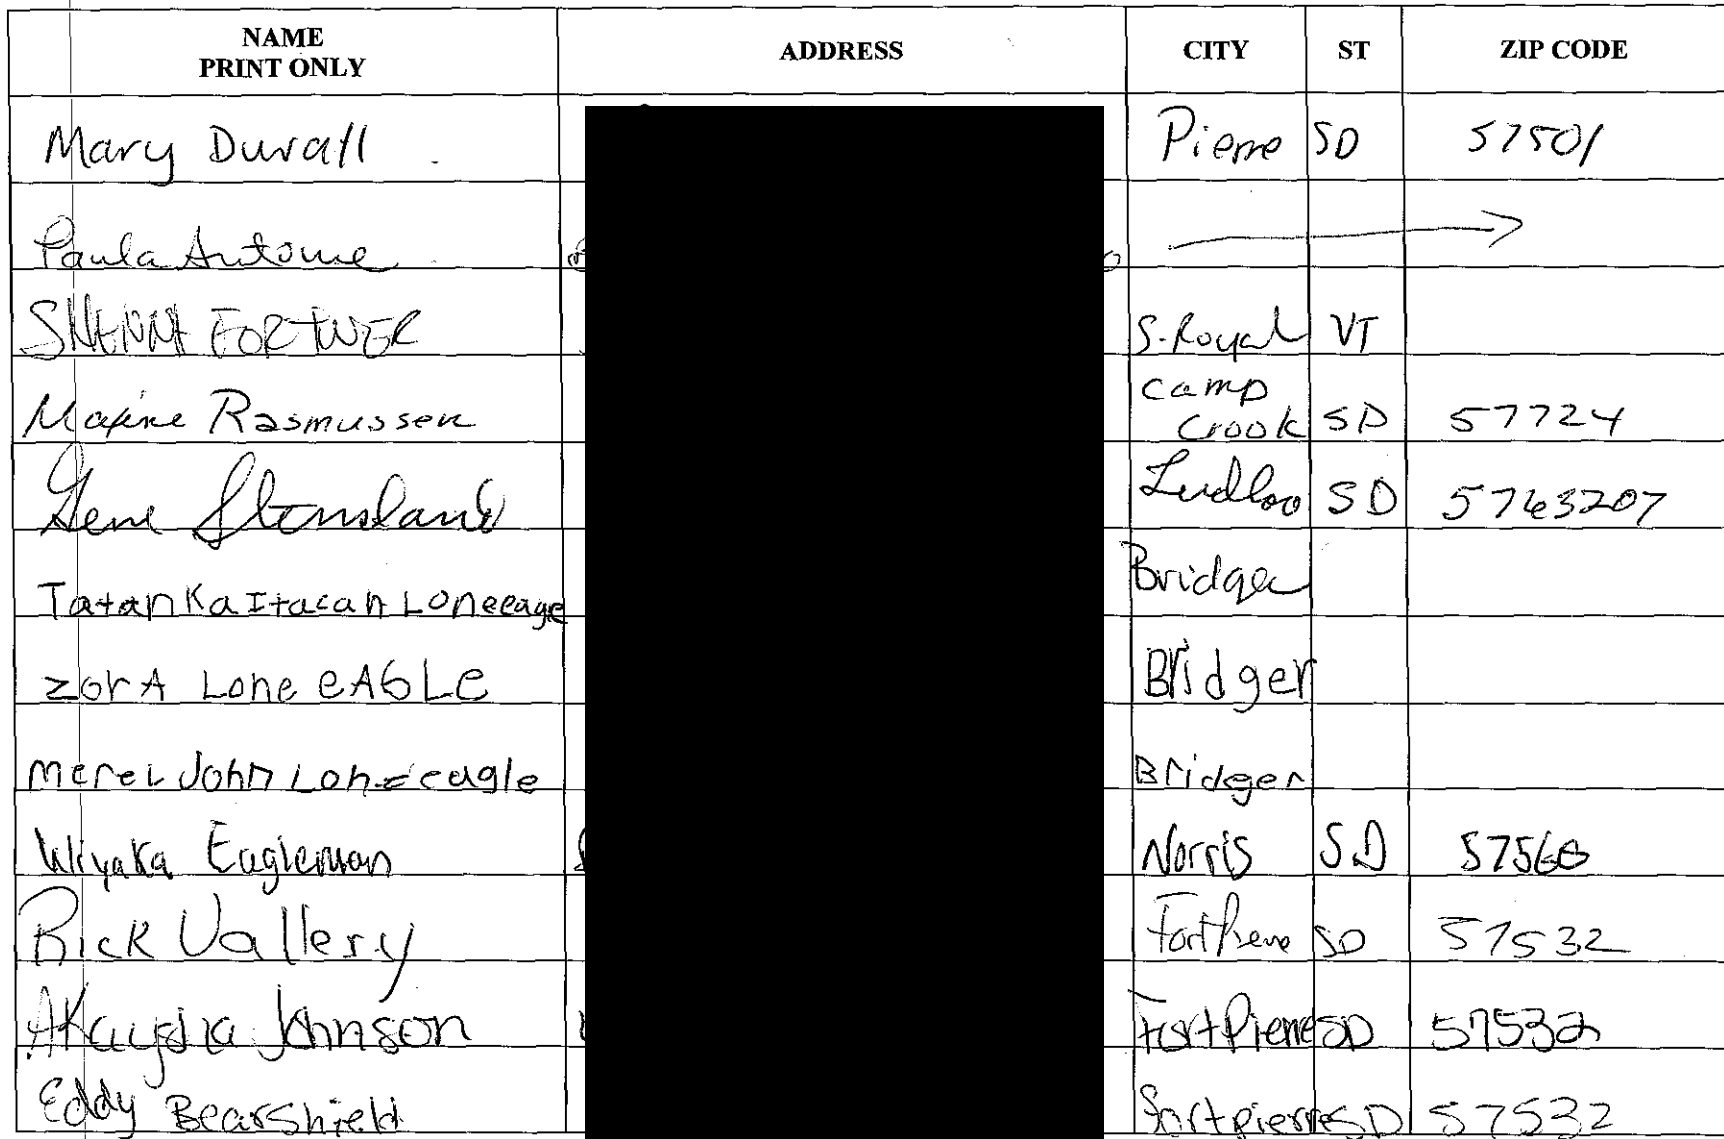 NAME
PRINT ONLY ADDRESS CITY ST ZIP CODE
Mary Duvall Pierre SD 57501
Paula Antoine →
FORTNER S. Royal VT
Maxine Rasmussen Camp
Crook SD 57724
Gene Ludloo SD 5763207
Tatanka Itacan Loneeagle Bridger
Zora Lone Eagle Bridger
Merel John Loneeagle Bridger
Wiyaka Eagleman Norris SD 57560
Rick Vallery Fort Pierre SD 57532
Akaysia Johnson Fort Pierre SD 57532
Eddy Bearshield Fort pierre SD 57532